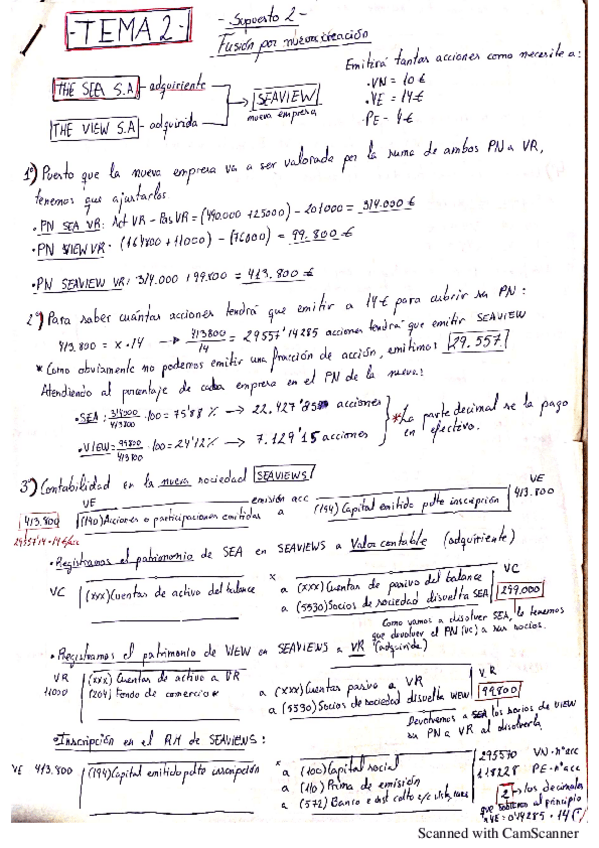 -TEMA 2-
- Supuesto 2 -
Fusión por nueva creación
Emitirá tantas acciones como necesite a:
· VN = 10 €
· VE = 14 €
· PE - 4 €
THE SEA S.A - adquiriente
SEAVIEW
nueva empresa
THE VIEW S.A - adquirida
1º) Puesto que la nueva empresa va a ser valorada por la suma de ambos PN a VR,
tenemos que ajustarlos.
· PN SEA VR: Act VR - Pas VR = (490.000 + 25000) - 201000 = 314.000 €
· PN VIEW VR · (164800 + 11000) - (76000) = 99.800 €
· PN SEAVIEW VR: 314.000 + 99.800 = 413.800 €
2º) Para saber cuántas acciones tendrá que emitir a 14€ para cubrir su PN:
413.800 = x · 14 → 413800/14 = 29557'14285 acciones tendrá que emitir SEAVIEW
* Como obviamente no podemos emitir una fracción de acción, emitimos 29.557
Atendiendo al porcentaje de cada empresa en el PN de la nueva:
· SEA: 314000/413800 · 100 = 75'88 % → 22.427'85 acciones
· VIEW = 99800/413800 · 100 = 24'12 % → 7.129'15 acciones
* La parte decimal se la pago
en efectivo.
3º) Contabilidad en la nueva sociedad SEAVIEWS
VE emisión acc VE
413.800 (190) Acciones o participaciones emitidas a (194) Capital emitido pdte inscripción 413.800
· Registramos el patrimonio de SEA en SEAVIEWS a Valor contable (adquiriente)
VC (xxx) Cuentas de activo del balance x a (xxx) Cuentas de pasivo del balance VC
a (5530) Socios de sociedad disuelta SEA 299.000
Como vamos a disolver SEA, le tenemos
que devolver el PN (VC) a sus socios.
· Registramos el patrimonio de VIEW en SEAVIEWS a VR (adquirida)
VR (xxx) Cuentas de activo a VR a (xxx) Cuentas pasivo a VR VR
11000 (204) Fondo de comercio * a (5530) Socios de sociedad disuelta VIEW 99800
Devolvemos a SEA los socios de VIEW
su PN a VR al disolverla.
· Inscripción en el RM de SEAVIEWS:
VE 413.800 (194) Capital emitido pdte inscripción x a (100) Capital social 295570 VN · nº acc
a (110) Prima de emisión 118228 PE · nº acc
a (572) Banco e inst 2 → los decimales
que sobraron al principio
Scanned with CamScanner